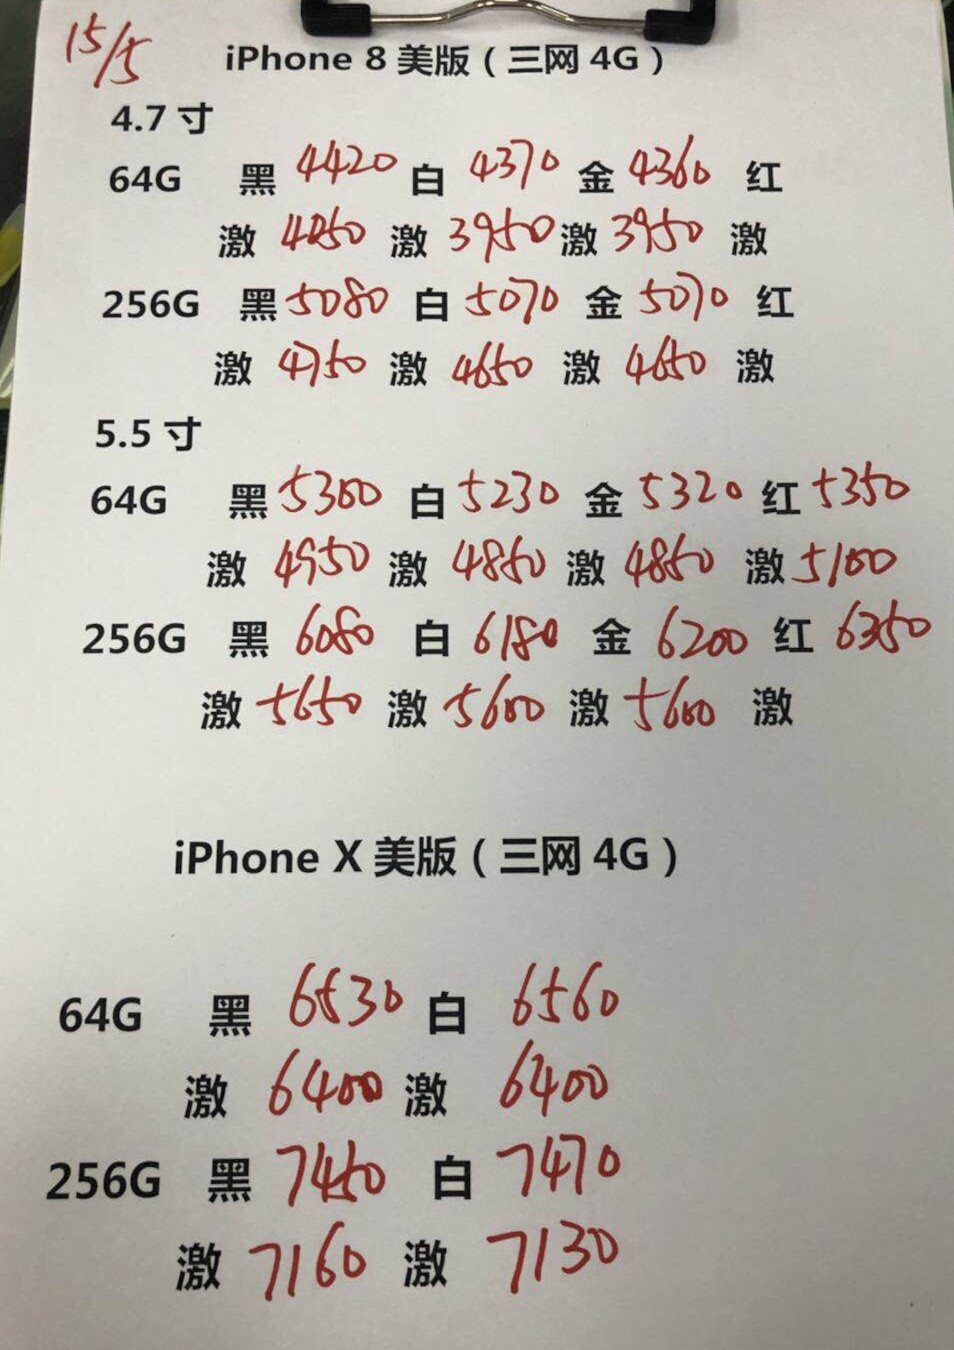 15/5
iPhone 8 美版（三网 4G）
4.7 寸
64G 黑 4420 白 4370 金 4360 红
激 4050 激 3950 激 3950 激
256G 黑 5080 白 5070 金 5070 红
激 4750 激 4650 激 4650 激
5.5 寸
64G 黑 5300 白 5230 金 5320 红 5350
激 4950 激 4850 激 4850 激 5100
256G 黑 6080 白 6180 金 6200 红 6350
激 5650 激 5600 激 5600 激
iPhone X 美版（三网 4G）
64G 黑 6530 白 6560
激 6400 激 6400
256G 黑 7450 白 7470
激 7160 激 7130